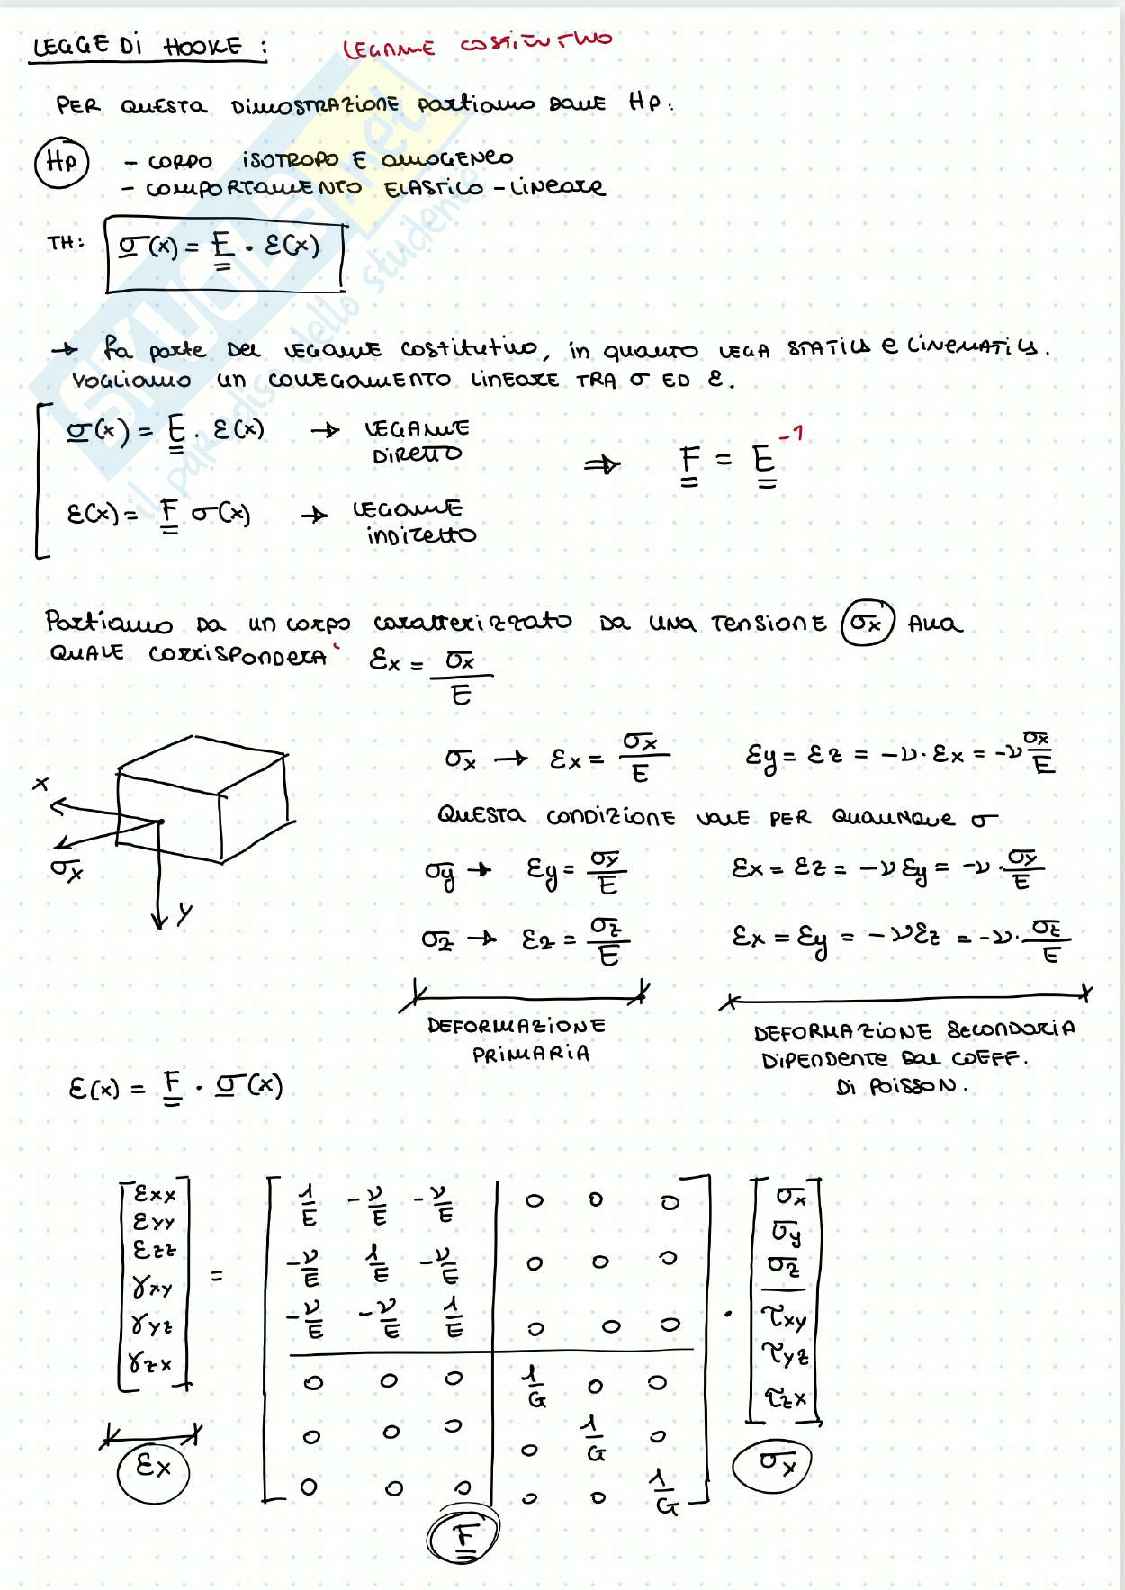 LEGGE DI HOOKE : LEGAME COSTITUTIVO
PER QUESTA DIMOSTRAZIONE partiamo DALLE Hp:
Hp - CORPO ISOTROPO E OMOGENEO
- COMPORTAMENTO ELASTICO-LINEARE
TH: σ(x) = E · ε(x)
→ fa parte DEL LEGAME COSTITUTIVO, in quanto LEGA STATICA e CINEMATICA.
VOGLIAMO UN COLLEGAMENTO LINEARE TRA σ ED ε.
σ(x) = E · ε(x) → LEGAME DIRETTO
⇒ F = E⁻¹
ε(x) = F σ(x) → LEGAME INDIRETTO
Partiamo DA UN CORPO caratterizzato DA UNA TENSIONE σx ALLA
QUALE CORRISPONDERA' εx = σx/E
x
σx
y
σx → εx = σx/E εy = εz = -ν · εx = -ν σx/E
QUESTA CONDIZIONE VALE PER QUALUNQUE σ
σy → εy = σy/E εx = εz = -ν εy = -ν · σy/E
σz → εz = σz/E εx = εy = -ν εz = -ν · σz/E
DEFORMAZIONE
PRIMARIA
DEFORMAZIONE SECONDARIA
DIPENDENTE DAL COEFF.
DI POISSON.
ε(x) = F · σ(x)
εxx 1/E -ν/E -ν/E 0 0 0 σx
εyy -ν/E 1/E -ν/E 0 0 0 σy
εzz -ν/E -ν/E 1/E 0 0 0 σz
γxy = 0 0 0 1/G 0 0 · τxy
γyz 0 0 0 0 1/G 0 τyz
γzx 0 0 0 0 0 1/G τzx
εx F σx
SKUOLA.net
il paradiso dello studente